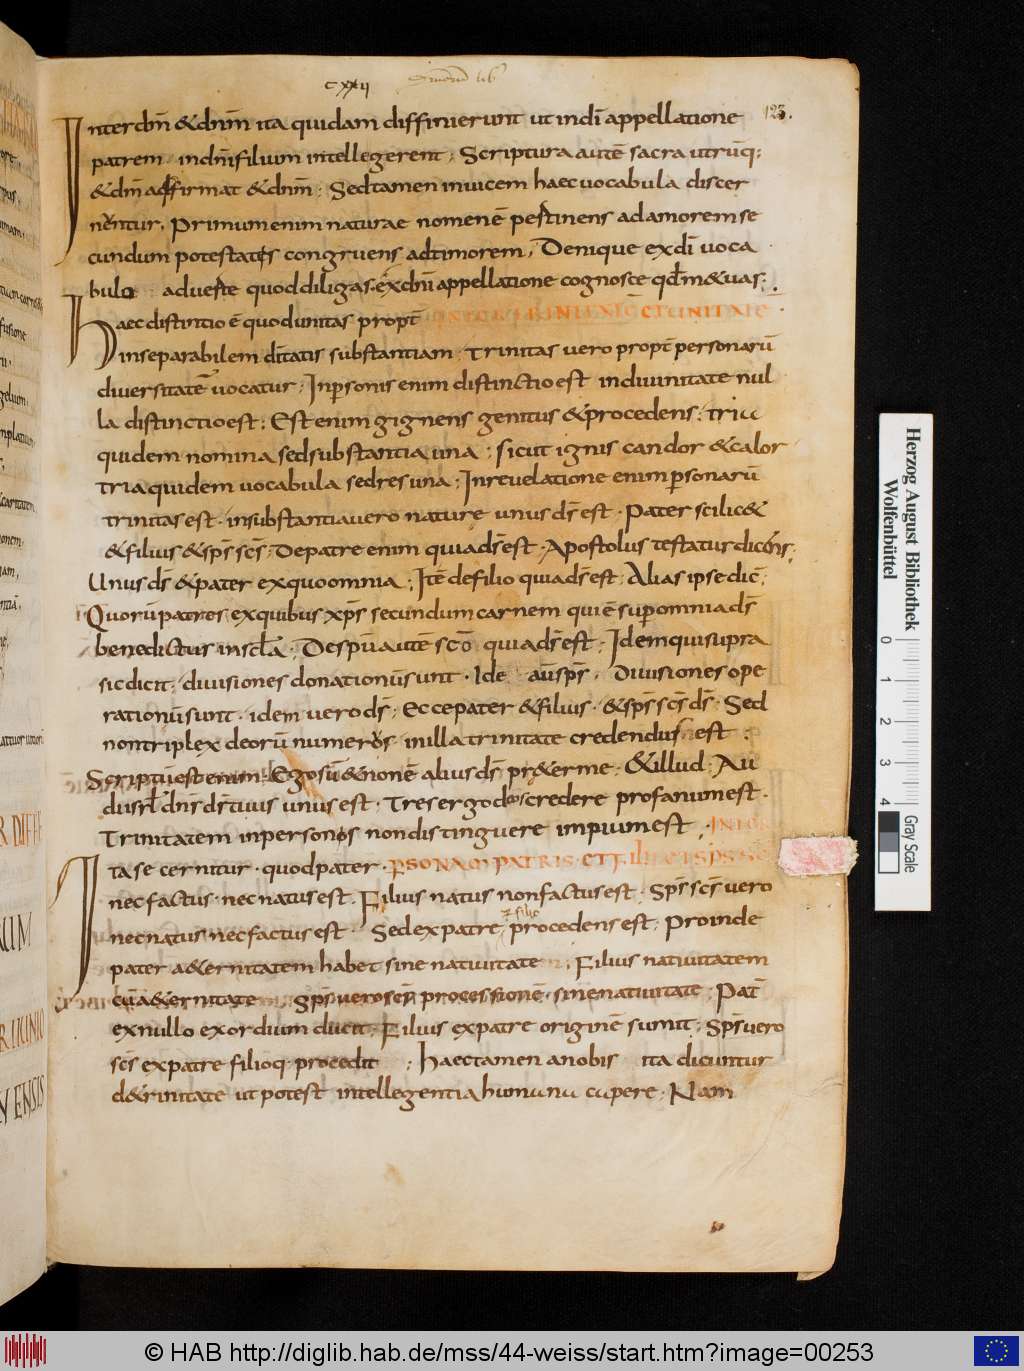 cxxii
123.
Inter dm̄ & dnm̄ ita quidam diffinierunt ut in di appellatione
patrem in dnī filium intellegerent; Scriptura autē sacra utrūq;
& dm̄ affirmat & dnm̄; Sed tamen inuicem haec uocabula discer
nentur. Primum enim naturae nomen ē pertinens ad amorem se
cundum potestatis congruens ad timorem; Denique ex di uoca
bulo aduerte quod diligas. ex dnī appellatione cognosce qđ m&uas;
INTER TRINITATĒ ET UNITATĒ
Haec distinctio ē quod unitas propt
inseparabilem ditatis substantiam; Trinitas uero propt personarū
diuersitatē uocatur; In psonis enim distinctio est in diuinitate nul
la distinctio est; Est enim gignens genitus & procedens; tria
quidem nomina sed substantia una; sicut ignis candor & calor
tria quidem uocabula sed res una; In reuelatione enim psonarū
trinitas est. in substantia uero nature unus ds̄ est. Pater scilic&
& filius & sps̄ scs̄; De patre enim quia ds̄ est. Apostolus testatur dicens;
Unus ds̄ & pater ex quo omnia; Itē de filio quia ds̄ est; Alias ipse dic̄;
Quorū patres ex quibus xps̄ secundum carnem qui ē sup omnia ds̄
benedictus in scla; De spū autē sc̄o quia ds̄ est; Idem qui supra
sic dicit; diuisiones donationū sunt. Ide aū sps̄. Diuisiones ope
rationū sunt. idem uero ds̄; Ecce pater & filius. & sps̄ scs̄ ds̄; Sed
non triplex deorū numerus in illa trinitate credendus est;
Scriptū est enim. Ego sū & non ē alius ds̄ pr&er me; & illud; Au
di isrl dns̄ ds̄ tuus unus est; Tres ergo deos credere profanum est.
Trinitatem in personis non distinguere impium est; INTER
Ita se cernitur. quod pater. PSONAM PATRIS. ET FILII ET SPS SCI
nec factus. nec natus est. Filius natus non factus est. Sps̄ scs̄ uero
& filio
nec natus nec factus est. Sed ex patre procedens est; Proinde
pater a&ernitatem habet sine natiuitate; Filius natiuitatem
cū a&ernitate; Sps̄ uero scs̄ processionē. sine natiuitate; Pat
ex nullo exordium ducit. Filius ex patre originē sumit; Sps̄ uero
scs̄ ex patre filioq. procedit; Haec tamen a nobis ita dicuntur
de trinitate ut potest intellegentia humana cupere; Nam
Herzog August Bibliothek
Wolfenbüttel
0 1 2 3 4 Gray Scale
© HAB http://diglib.hab.de/mss/44-weiss/start.htm?image=00253